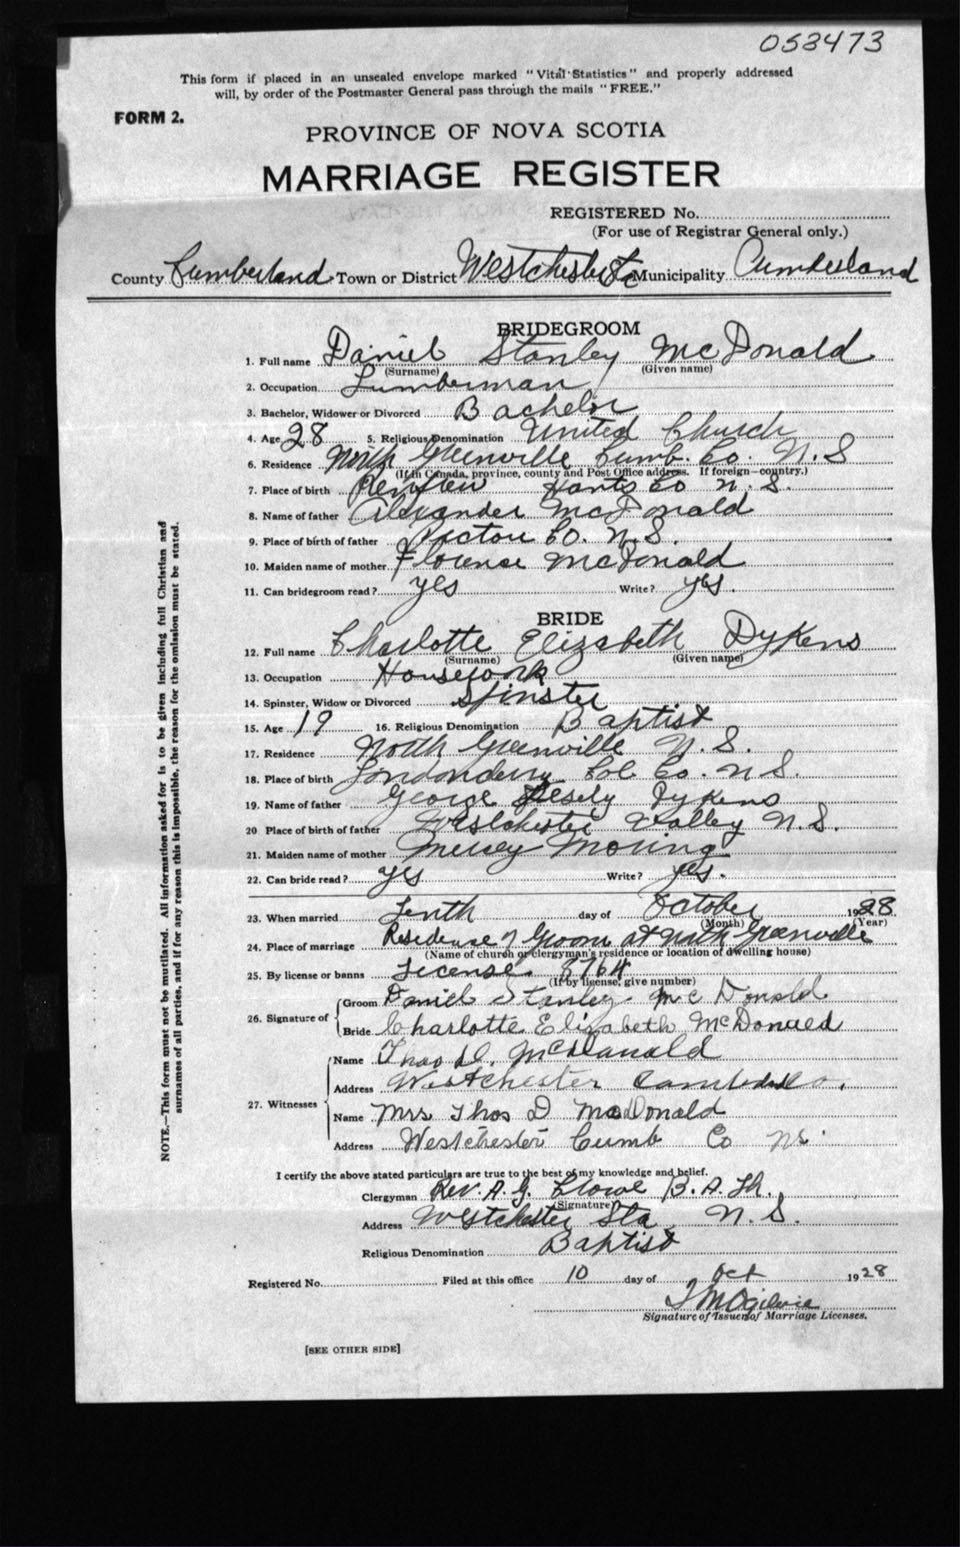 053473
This form if placed in an unsealed envelope marked "Vital Statistics" and properly addressed
will, by order of the Postmaster General pass through the mails "FREE."
FORM 2.
PROVINCE OF NOVA SCOTIA
MARRIAGE REGISTER
REGISTERED No.
(For use of Registrar General only.)
County Cumberland Town or District Westchester Sta Municipality Cumberland
BRIDEGROOM
1. Full name Daniel Stanley McDonald
(Surname) (Given name)
2. Occupation Lumberman
3. Bachelor, Widower or Divorced Bachelor
4. Age 28 5. Religious Denomination United Church
6. Residence North Greenville Cumb. Co. N.S
(If in Canada, province, county and Post Office address. If foreign—country.)
7. Place of birth Renfrew Hants Co N.S.
8. Name of father Alexander McDonald
9. Place of birth of father Pictou Co. N.S.
10. Maiden name of mother Florence McDonald
11. Can bridegroom read? yes Write? yes.
BRIDE
12. Full name Charlotte Elizabeth Dykens
(Surname) (Given name)
13. Occupation Housework
14. Spinster, Widow or Divorced Spinster
15. Age 19 16. Religious Denomination Baptist
17. Residence North Greenville N.S.
18. Place of birth Londonderry Col Co. N S.
19. Name of father George Dykens
20 Place of birth of father Westchester Valley N.S.
21. Maiden name of mother
22. Can bride read? yes Write? yes.
23. When married Tenth day of October 1928
(Month) (Year)
24. Place of marriage Residense of Groom at North Greenville
(Name of church or clergyman's residence or location of dwelling house)
25. By license or banns License 8764
(If by license, give number)
26. Signature of Groom Daniel Stanley Mc Donald
Bride Charlotte Elizabeth McDonald
27. Witnesses Name Thos D. McDonald
Address Westchester Cumb Co.
Name Mrs Thos D McDonald
Address Westchester Cumb Co NS
I certify the above stated particulars are true to the best of my knowledge and belief.
Clergyman Rev. A. G. Crowe B.A. Th.
(Signature)
Address Westchester Sta. N.S.
Religious Denomination Baptist
Registered No. Filed at this office 10 day of Oct 1928
Ogilvie
Signature of Issuer of Marriage Licenses.
[SEE OTHER SIDE]
NOTE.—This form must not be mutilated. All information asked for is to be given including full Christian and
surnames of all parties, and if for any reason this is impossible, the reason for the omission must be stated.